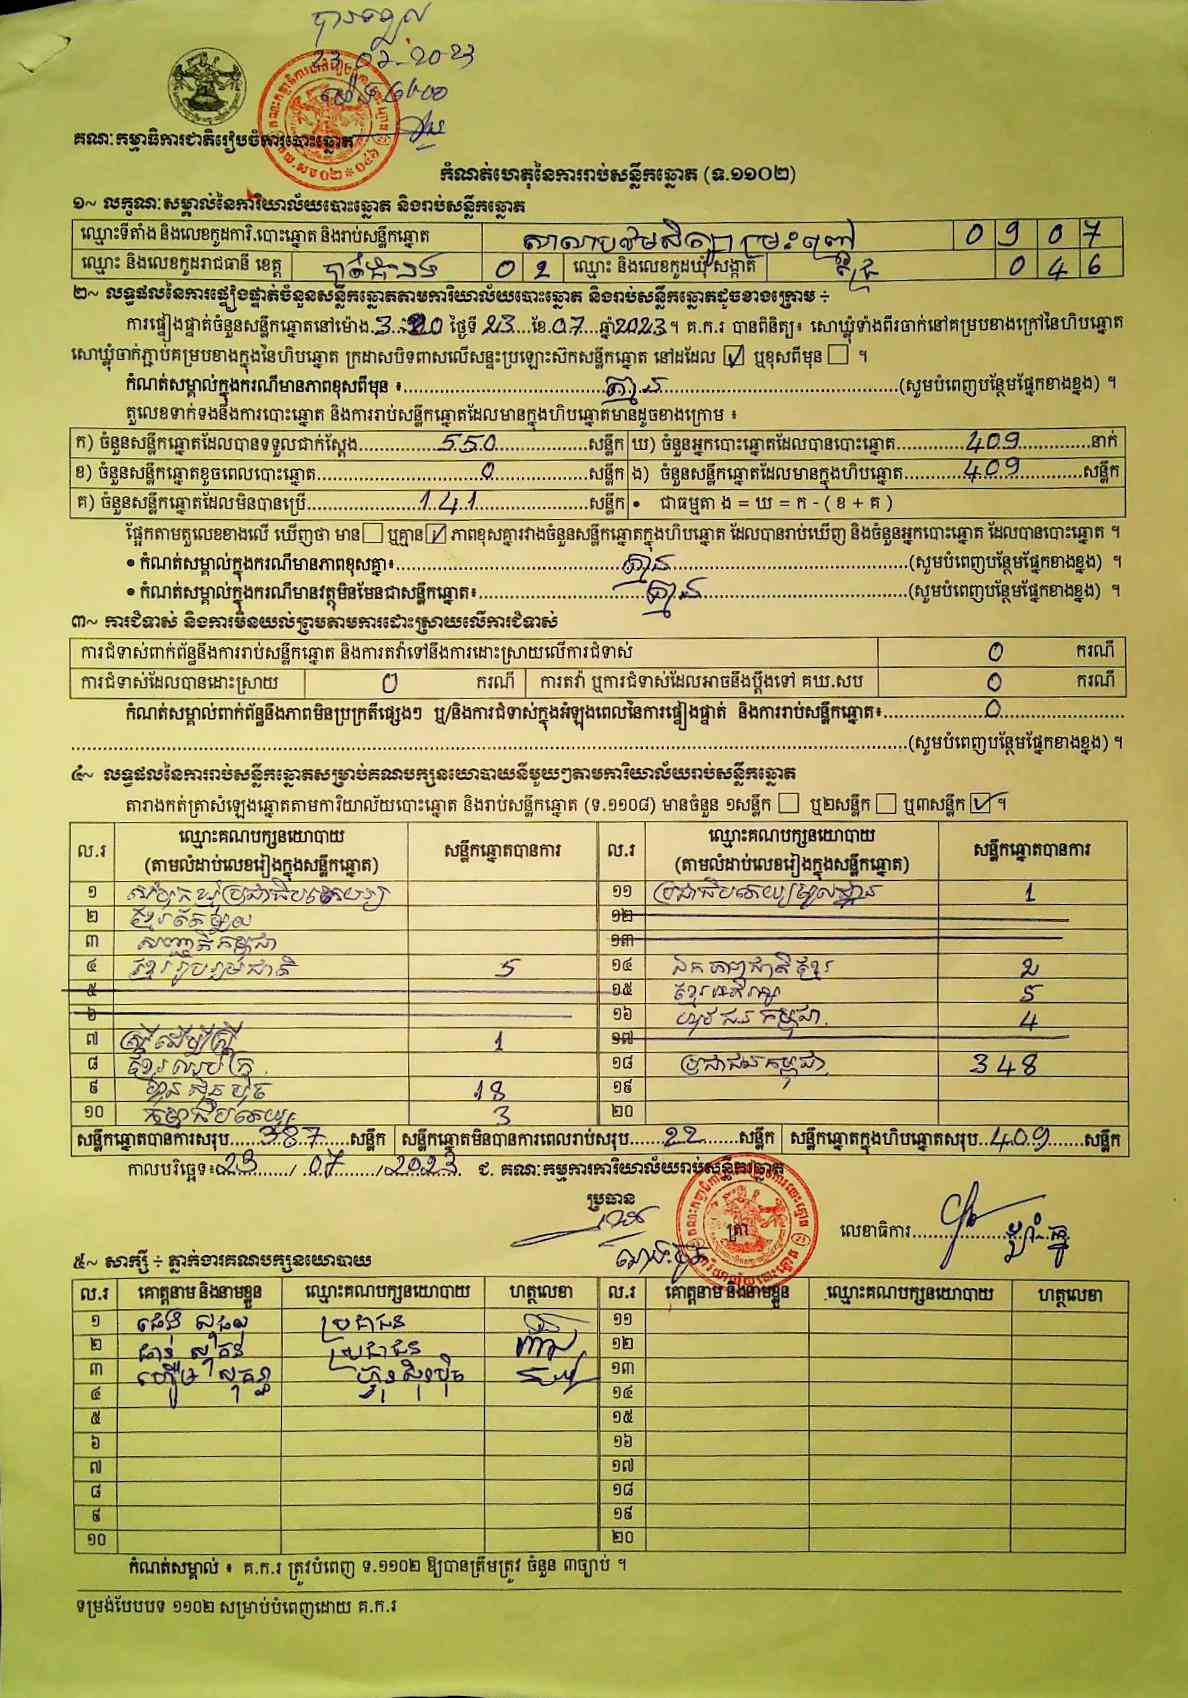 បានទទួល
23.07.2023
គណៈកម្មាធិការជាតិរៀបចំការបោះឆ្នោត
កំណត់ហេតុនៃការរាប់សន្លឹកឆ្នោត (ទ.១១០២)
១~ លក្ខណៈសម្គាល់នៃការិយាល័យបោះឆ្នោត និងរាប់សន្លឹកឆ្នោត
ឈ្មោះទីតាំង និងលេខកូដការិ.បោះឆ្នោត និងរាប់សន្លឹកឆ្នោត សាលាបឋមសិក្សា 0 9 0 7
ឈ្មោះ និងលេខកូដរាជធានី ខេត្ត បាត់ដំបង 0 2 ឈ្មោះ និងលេខកូដឃុំ សង្កាត់ 0 4 6
២~ លទ្ធផលនៃការផ្ទៀងផ្ទាត់ចំនួនសន្លឹកឆ្នោតតាមការិយាល័យបោះឆ្នោត និងរាប់សន្លឹកឆ្នោតដូចខាងក្រោម ÷
ការផ្ទៀងផ្ទាត់ចំនួនសន្លឹកឆ្នោតនៅម៉ោង 3:20 ថ្ងៃទី 23 ខែ 07 ឆ្នាំ 2023 ។ គ.ក.រ បានពិនិត្យ៖ សោឃ្លុំទាំងពីរចាក់នៅគម្របខាងក្រៅនៃហិបឆ្នោត
សោឃ្លុំចាក់ភ្ជាប់គម្របខាងក្នុងនៃហិបឆ្នោត ក្រដាសបិទពាសលើសន្ទះប្រឡោះស៊កសន្លឹកឆ្នោត នៅដដែល ☑ ឬខុសពីមុន ☐ ។
កំណត់សម្គាល់ក្នុងករណីមានភាពខុសពីមុន ៖ គ្មាន (សូមបំពេញបន្ថែមផ្នែកខាងខ្នង) ។
តួលេខទាក់ទងនឹងការបោះឆ្នោត និងការរាប់សន្លឹកឆ្នោតដែលមានក្នុងហិបឆ្នោតមានដូចខាងក្រោម ៖
ក) ចំនួនសន្លឹកឆ្នោតដែលបានទទួលជាក់ស្តែង 550 សន្លឹក ឃ) ចំនួនអ្នកបោះឆ្នោតដែលបានបោះឆ្នោត 409 នាក់
ខ) ចំនួនសន្លឹកឆ្នោតខូចពេលបោះឆ្នោត 0 សន្លឹក ង) ចំនួនសន្លឹកឆ្នោតដែលមានក្នុងហិបឆ្នោត 409 សន្លឹក
គ) ចំនួនសន្លឹកឆ្នោតដែលមិនបានប្រើ 141 សន្លឹក • ជាធម្មតា ង = ឃ = ក - ( ខ + គ )
ផ្អែកតាមតួលេខខាងលើ ឃើញថា មាន ☐ ឬគ្មាន ☑ ភាពខុសគ្នារវាងចំនួនសន្លឹកឆ្នោតក្នុងហិបឆ្នោត ដែលបានរាប់ឃើញ និងចំនួនអ្នកបោះឆ្នោត ដែលបានបោះឆ្នោត ។
• កំណត់សម្គាល់ក្នុងករណីមានភាពខុសគ្នា៖ គ្មាន (សូមបំពេញបន្ថែមផ្នែកខាងខ្នង) ។
• កំណត់សម្គាល់ក្នុងករណីមានវត្ថុមិនមែនជាសន្លឹកឆ្នោត៖ គ្មាន (សូមបំពេញបន្ថែមផ្នែកខាងខ្នង) ។
៣~ ការជំទាស់ និងការមិនយល់ព្រមតាមការដោះស្រាយលើការជំទាស់
ការជំទាស់ពាក់ព័ន្ធនឹងការរាប់សន្លឹកឆ្នោត និងការតវ៉ាទៅនឹងការដោះស្រាយលើការជំទាស់ 0 ករណី
ការជំទាស់ដែលបានដោះស្រាយ 0 ករណី ការតវ៉ា ឬការជំទាស់ដែលអាចនឹងប្តឹងទៅ គឃ.សប 0 ករណី
កំណត់សម្គាល់ពាក់ព័ន្ធនឹងភាពមិនប្រក្រតីផ្សេងៗ ឬ/និងការជំទាស់ក្នុងអំឡុងពេលនៃការផ្ទៀងផ្ទាត់ និងការរាប់សន្លឹកឆ្នោត៖ 0
(សូមបំពេញបន្ថែមផ្នែកខាងខ្នង) ។
៤~ លទ្ធផលនៃការរាប់សន្លឹកឆ្នោតសម្រាប់គណបក្សនយោបាយនីមួយៗតាមការិយាល័យរាប់សន្លឹកឆ្នោត
តារាងកត់ត្រាសំឡេងឆ្នោតតាមការិយាល័យបោះឆ្នោត និងរាប់សន្លឹកឆ្នោត (ទ.១១០៨) មានចំនួន ១សន្លឹក ☐ ឬ២សន្លឹក ☐ ឬ៣សន្លឹក ☑ ។
ល.រ ឈ្មោះគណបក្សនយោបាយ (តាមលំដាប់លេខរៀងក្នុងសន្លឹកឆ្នោត) សន្លឹកឆ្នោតបានការ ល.រ ឈ្មោះគណបក្សនយោបាយ (តាមលំដាប់លេខរៀងក្នុងសន្លឹកឆ្នោត) សន្លឹកឆ្នោតបានការ
១ សំបុកឃ្មុំប្រជាធិបតេយ្យ ១១ ប្រជាធិបតេយ្យមូលដ្ឋាន 1
២ ខ្មែរតែមួយ ១២
៣ សញ្ជាតិកម្ពុជា ១៣
៤ ខ្មែររួបរួមជាតិ 5 ១៤ ឯកភាពជាតិខ្មែរ 2
៥ ១៥ ខ្មែរអភិរក្ស 5
៦ ១៦ យុវជនកម្ពុជា 4
៧ ស្ត្រីដើម្បីស្ត្រី 1 ១៧
៨ ខ្មែរឈប់ក្រ ១៨ ប្រជាជនកម្ពុជា 348
៩ ហ្វ៊ុនស៊ិនប៉ិច 18 ១៩
១០ កម្មាធិបតេយ្យ 3 ២០
សន្លឹកឆ្នោតបានការសរុប 387 សន្លឹក សន្លឹកឆ្នោតមិនបានការពេលរាប់សរុប 22 សន្លឹក សន្លឹកឆ្នោតក្នុងហិបឆ្នោតសរុប 409 សន្លឹក
កាលបរិច្ឆេទ៖ 23 / 07 / 2023 ជ. គណៈកម្មការការិយាល័យរាប់សន្លឹកឆ្នោត
ប្រធាន ត្រា លេខាធិការ
៥~ សាក្សី ÷ ភ្នាក់ងារគណបក្សនយោបាយ
ល.រ គោត្តនាម និងនាមខ្លួន ឈ្មោះគណបក្សនយោបាយ ហត្ថលេខា ល.រ គោត្តនាម និងនាមខ្លួន ឈ្មោះគណបក្សនយោបាយ ហត្ថលេខា
១ ប្រជាជន ១១
២ ប្រជាជន ១២
៣ ហ្វ៊ុនស៊ិនប៉ិច ១៣
៤ ១៤
៥ ១៥
៦ ១៦
៧ ១៧
៨ ១៨
៩ ១៩
១០ ២០
កំណត់សម្គាល់ ៖ គ.ក.រ ត្រូវបំពេញ ទ.១១០២ ឱ្យបានត្រឹមត្រូវ ចំនួន ៣ច្បាប់ ។
ទម្រង់បែបបទ ១១០២ សម្រាប់បំពេញដោយ គ.ក.រ